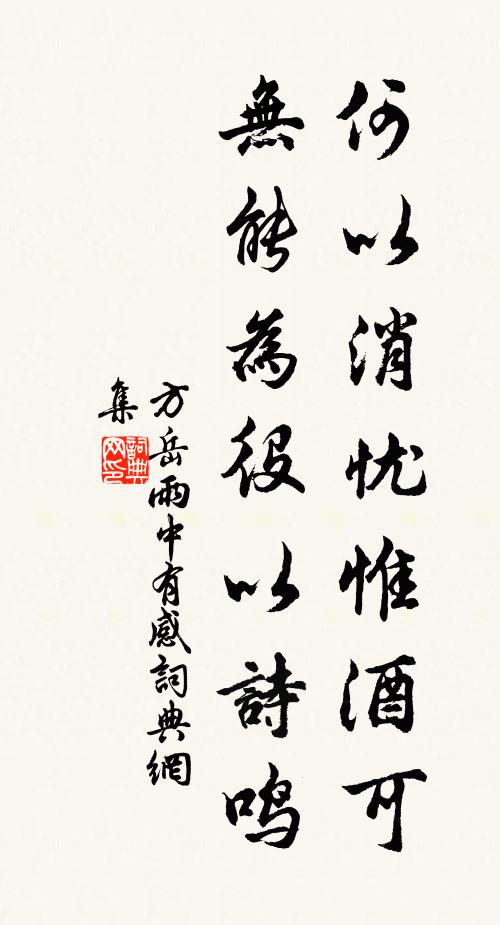 何以消忧惟酒可
無能為役以詩鸣
方岳雨中有感詞典網
集
詞典
网印